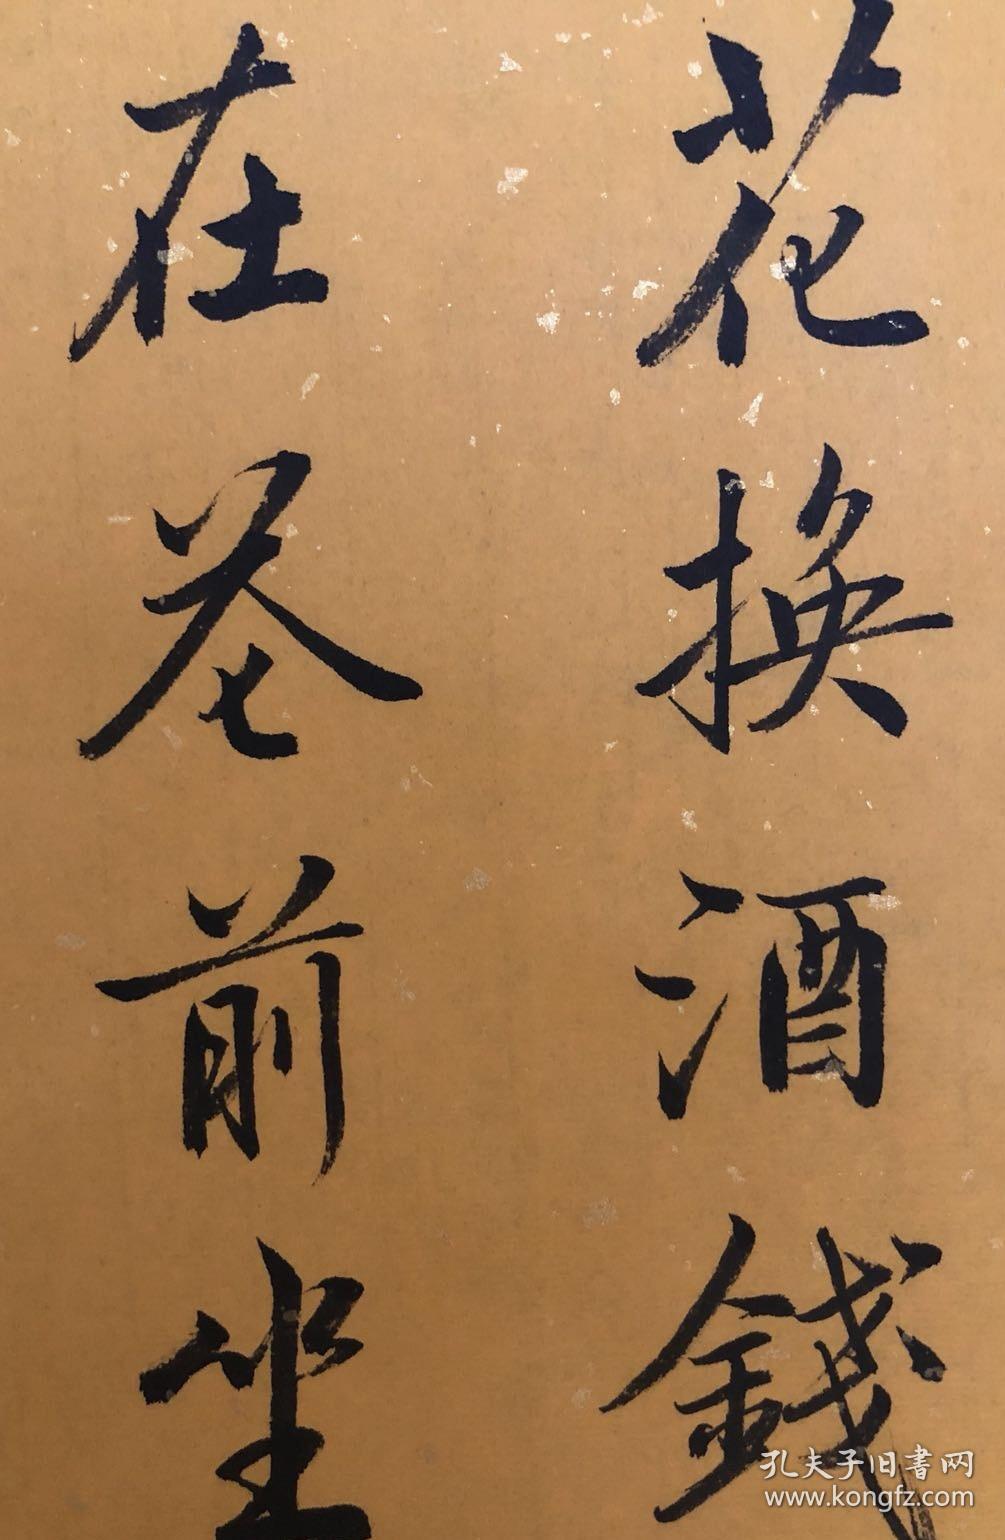 花換酒錢
在花前坐
孔夫子旧書网
www.kongfz.com